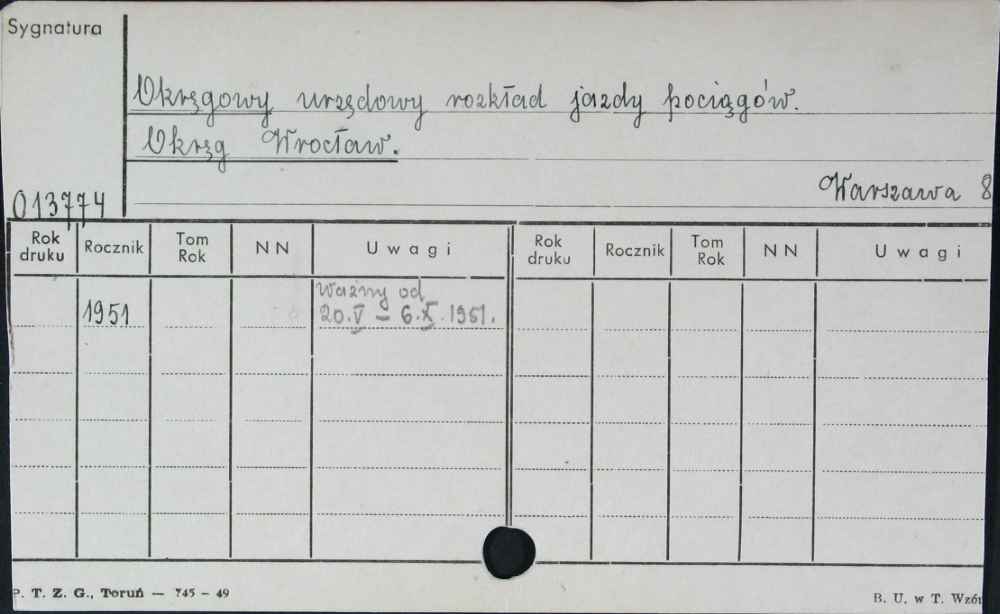 Sygnatura
Okręgowy urzędowy rozkład jazdy pociągów.
Okręg Wrocław.
Warszawa 8
013774
Rok druku Rocznik Tom Rok NN Uwagi Rok druku Rocznik Tom Rok NN Uwagi
Ważny od
1951 20.V – 6.X.1951.
P. T. Z. G., Toruń — 745 — 49
B. U. w T. Wzór